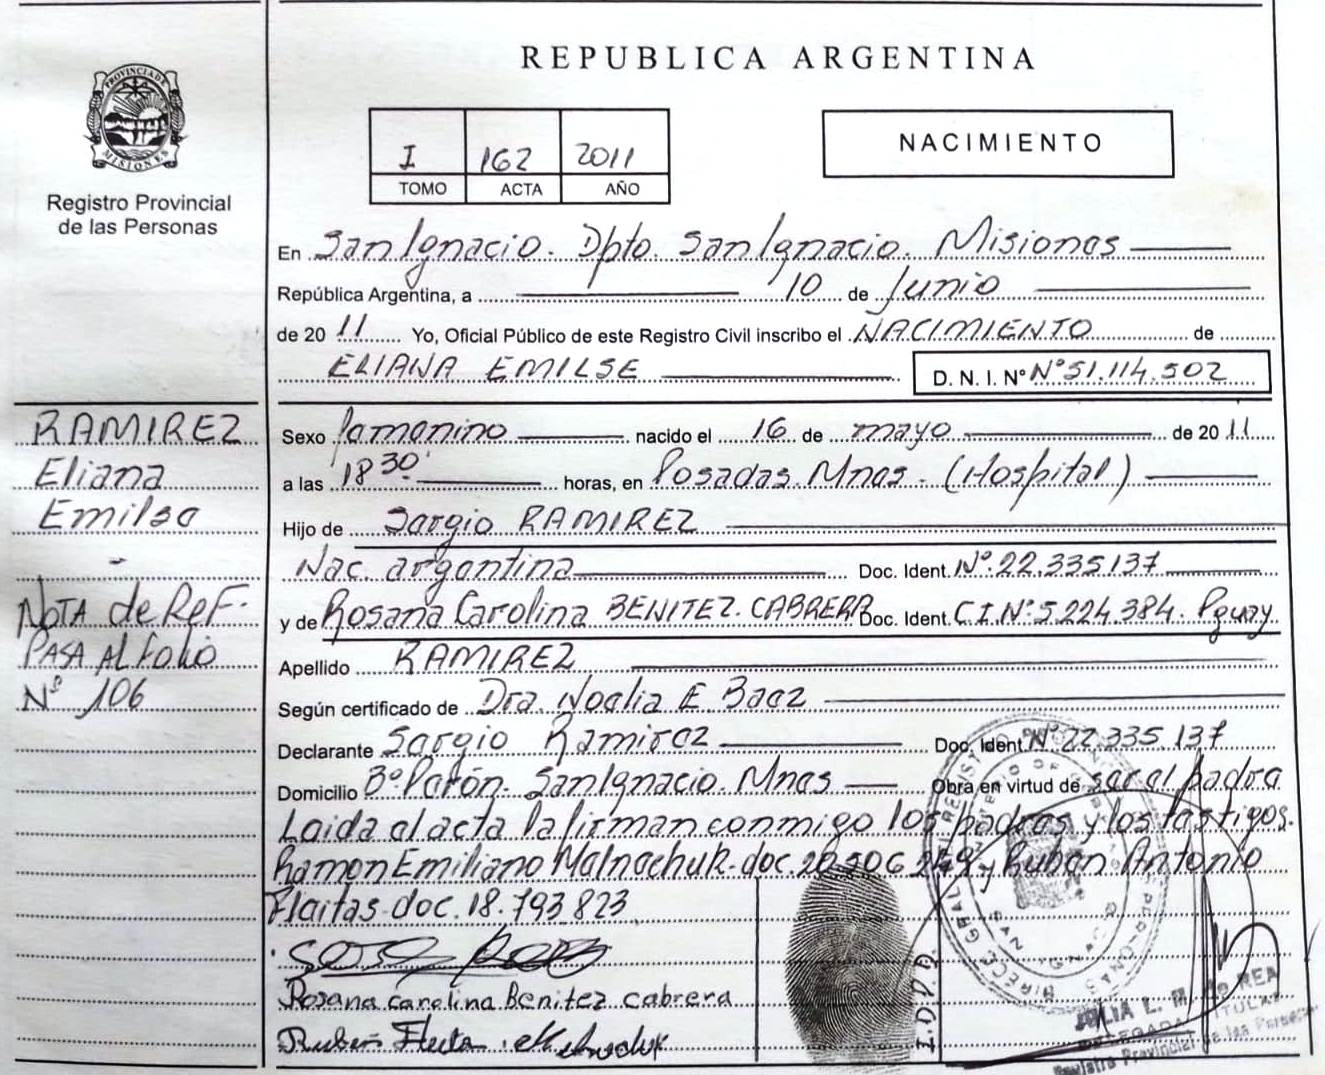 REPUBLICA ARGENTINA
PROVINCIA DE MISIONES
Registro Provincial
de las Personas
I 162 2011
TOMO ACTA AÑO
NACIMIENTO
En San Ignacio. Dpto. San Ignacio. Misiones
República Argentina, a 10 de Junio
de 2011 Yo, Oficial Público de este Registro Civil inscribo el NACIMIENTO de
ELIANA EMILSE D. N. I. Nº Nº 51.114.502
RAMIREZ
Eliana
Emilse
NOTA de REF.
PASA AL FOLIO
Nº 106
Sexo femenino nacido el 16 de mayo de 2011
a las 18 30' horas, en Posadas. Mnes. (Hospital)
Hijo de Sergio RAMIREZ
Nac. argentina Doc. Ident. Nº.22.335.137
y de Rosana Carolina BENITEZ. CABRERA Doc. Ident. C.I.Nº.5.224.384. Pguay
Apellido RAMIREZ
Según certificado de Dra. Noelia E Baez
Declarante Sergio Ramirez Doc. Ident. Nº 22.335.137
Domicilio Bº Patón. San Ignacio. Mnes Obra en virtud de ser el padre
Leida el acta la firman conmigo los padres y los testigos.
Ramon Emiliano Malnechuk-doc. y Ruben Antonio
Fleitas-doc.18.793.823
Rosana Carolina Benitez Cabrera
Ruben Fleita
I.D.D.
JULIA L.
Registro Provincial de las Personas